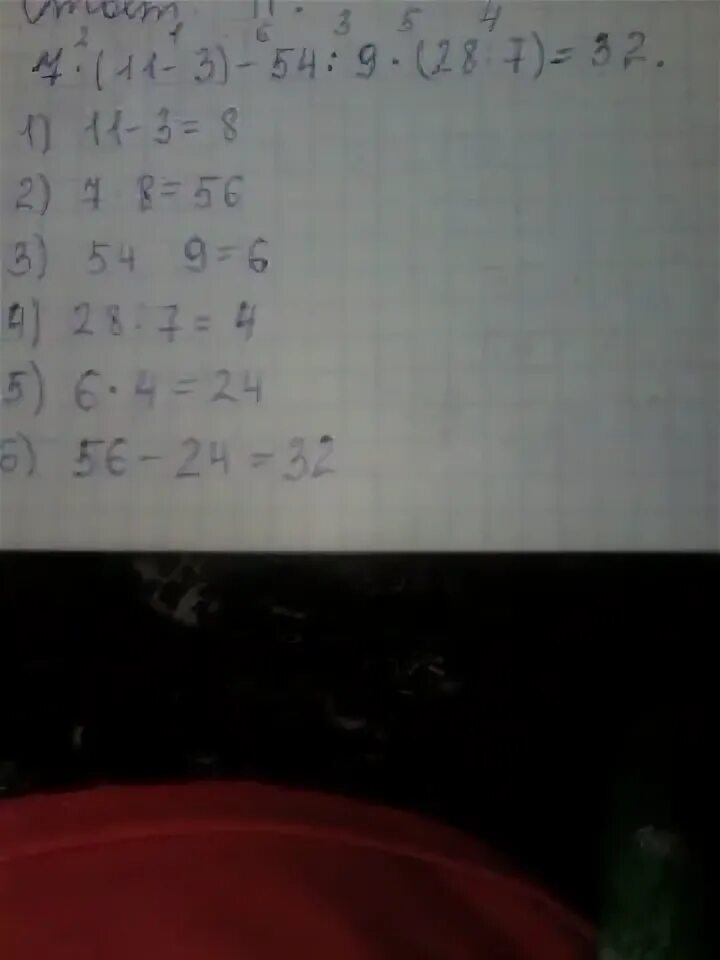 2 1 6 3 5 4
7·(11-3)-54:9·(28:7)=32.
1) 11-3=8
2) 7 8=56
3) 54 9=6
4) 28:7=4
5) 6·4=24
6) 56-24=32